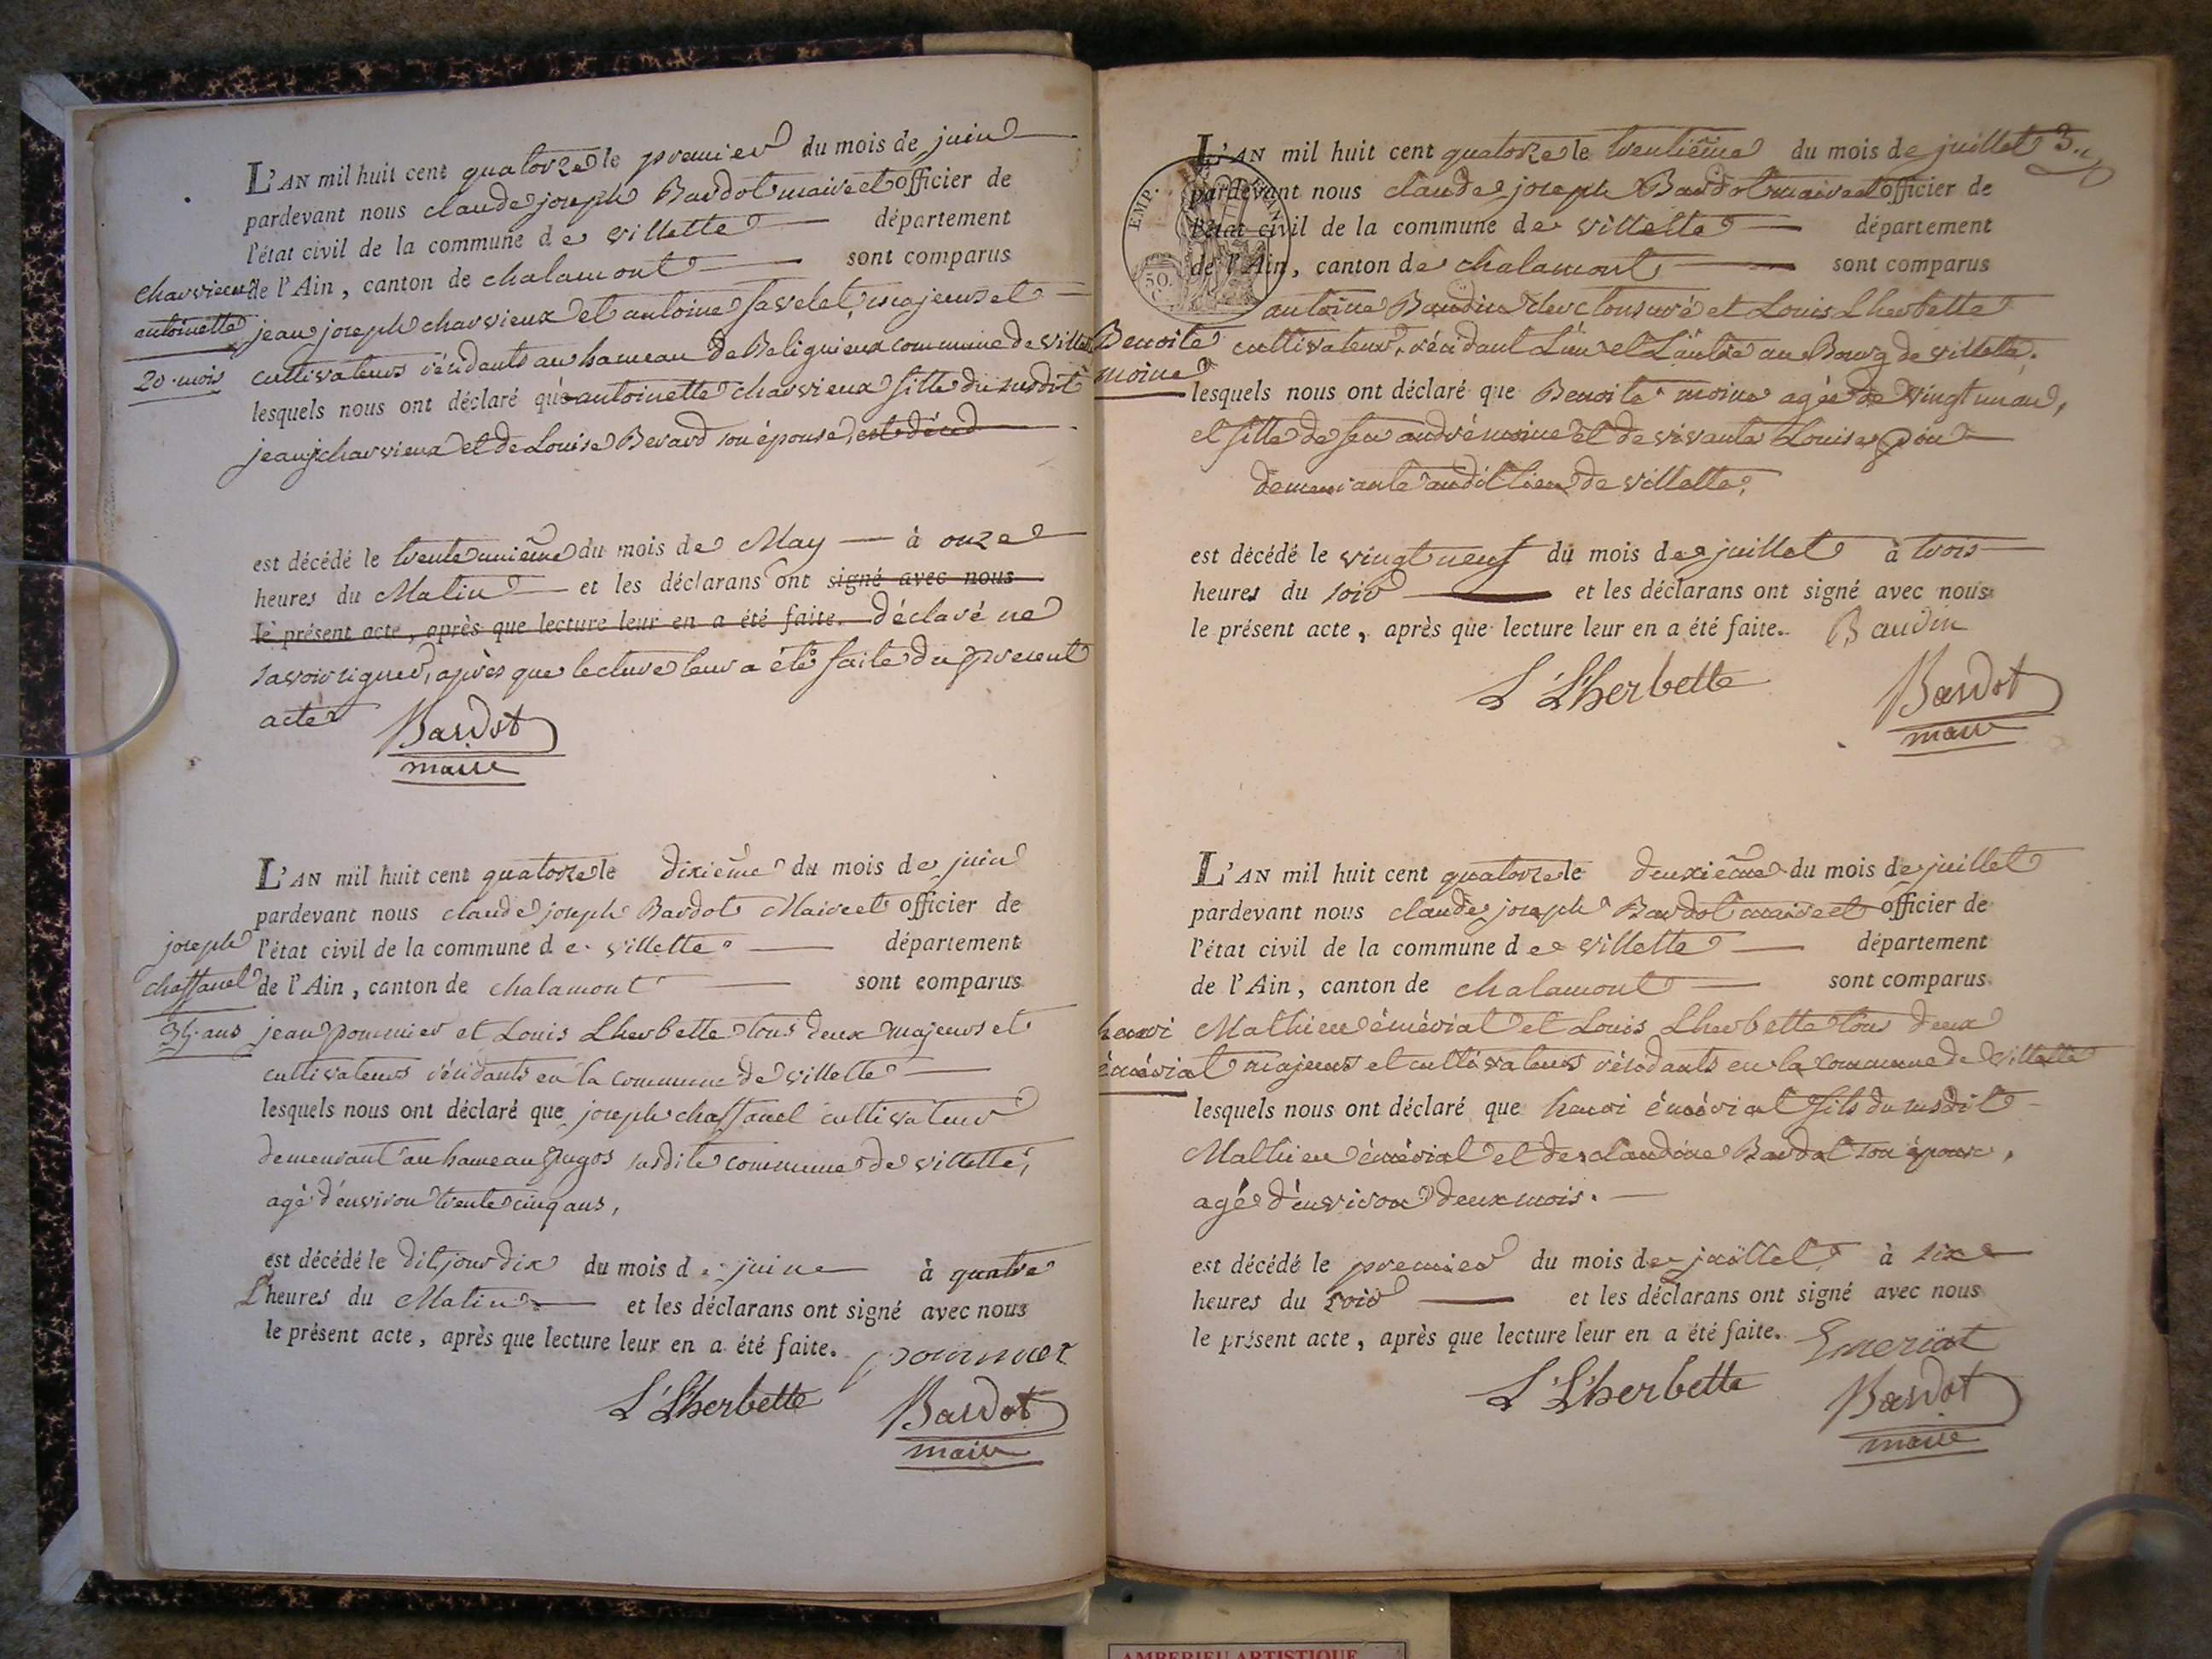 L'AN mil huit cent quatorze le premier du mois de juin
pardevant nous claude joseph Bardot maire et officier de
l'état civil de la commune de villette département
de l'Ain, canton de chalamont sont comparus
charvieux
antoinette
20 mois
jean joseph charvieux et antoine favelet, majeurs et
cultivateurs résidants au hameau de Belignieux commune de villette
lesquels nous ont déclaré que antoinette charvieux fille du susdit
jean j charvieux et de Louise Berard son épouse, est décéd
est décédé le trente unième du mois de May à onze
heures du Matin et les déclarans ont signé avec nous
le présent acte, après que lecture leur en a été faite. déclaré ne
savoir signer, après que lecture leur a été faite du present
acte
Bardot
maire
L'AN mil huit cent quatorze le dixième du mois de juin
pardevant nous claude joseph Bardot Maire et officier de
l'état civil de la commune de villette département
de l'Ain, canton de chalamont sont comparus
joseph
chassanel
35 ans
jean pommier et Louis Lherbette tous deux majeurs et
cultivateurs résidants en la commune de villette
lesquels nous ont déclaré que joseph chassanel cultivateur
demeurant au hameau gugos susdite commune de villette,
agé d'environ trente cinq ans,
est décédé le dit jour dix du mois de juin à quatre
heures du Matin et les déclarans ont signé avec nous
le présent acte, après que lecture leur en a été faite. pommier
L Lherbette Bardot
maire
L'AN mil huit cent quatorze le trentième du mois de juillet 3.
pardevant nous claude joseph Bardot maire et officier de
l'état civil de la commune de villette département
de l'Ain, canton de chalamont sont comparus
EMP. AN
50
C
Benoite
moine
antoine Baudin clerc tonsuré et Louis Lherbette
cultivateur, résidant L'un et L'autre au Bourg de villette,
lesquels nous ont déclaré que Benoite moine agée de vingt un an,
et fille de feu andré moine et de vivante Louise
demeurante audit lieu de villette,
est décédé le vingt neuf du mois de juillet à trois
heures du soir et les déclarans ont signé avec nous
le présent acte, après que lecture leur en a été faite. Baudin
L Lherbette Bardot
maire
L'AN mil huit cent quatorze le deuxième du mois de juillet
pardevant nous claude joseph Bardot maire et officier de
l'état civil de la commune de villette département
de l'Ain, canton de chalamont sont comparus
henri
émérial
Mathieu émérial et Louis Lherbette tous deux
majeurs et cultivateurs résidants en la commune de villette
lesquels nous ont déclaré que henri émérial fils du susdit
Mathieu émérial et de claudine Bardot son épouse,
agé d'environ deux mois.
est décédé le premier du mois de juillet à six
heures du soir et les déclarans ont signé avec nous
le présent acte, après que lecture leur en a été faite. Emeriat
L Lherbette Bardot
maire
AMBERIEU ARTISTIQUE